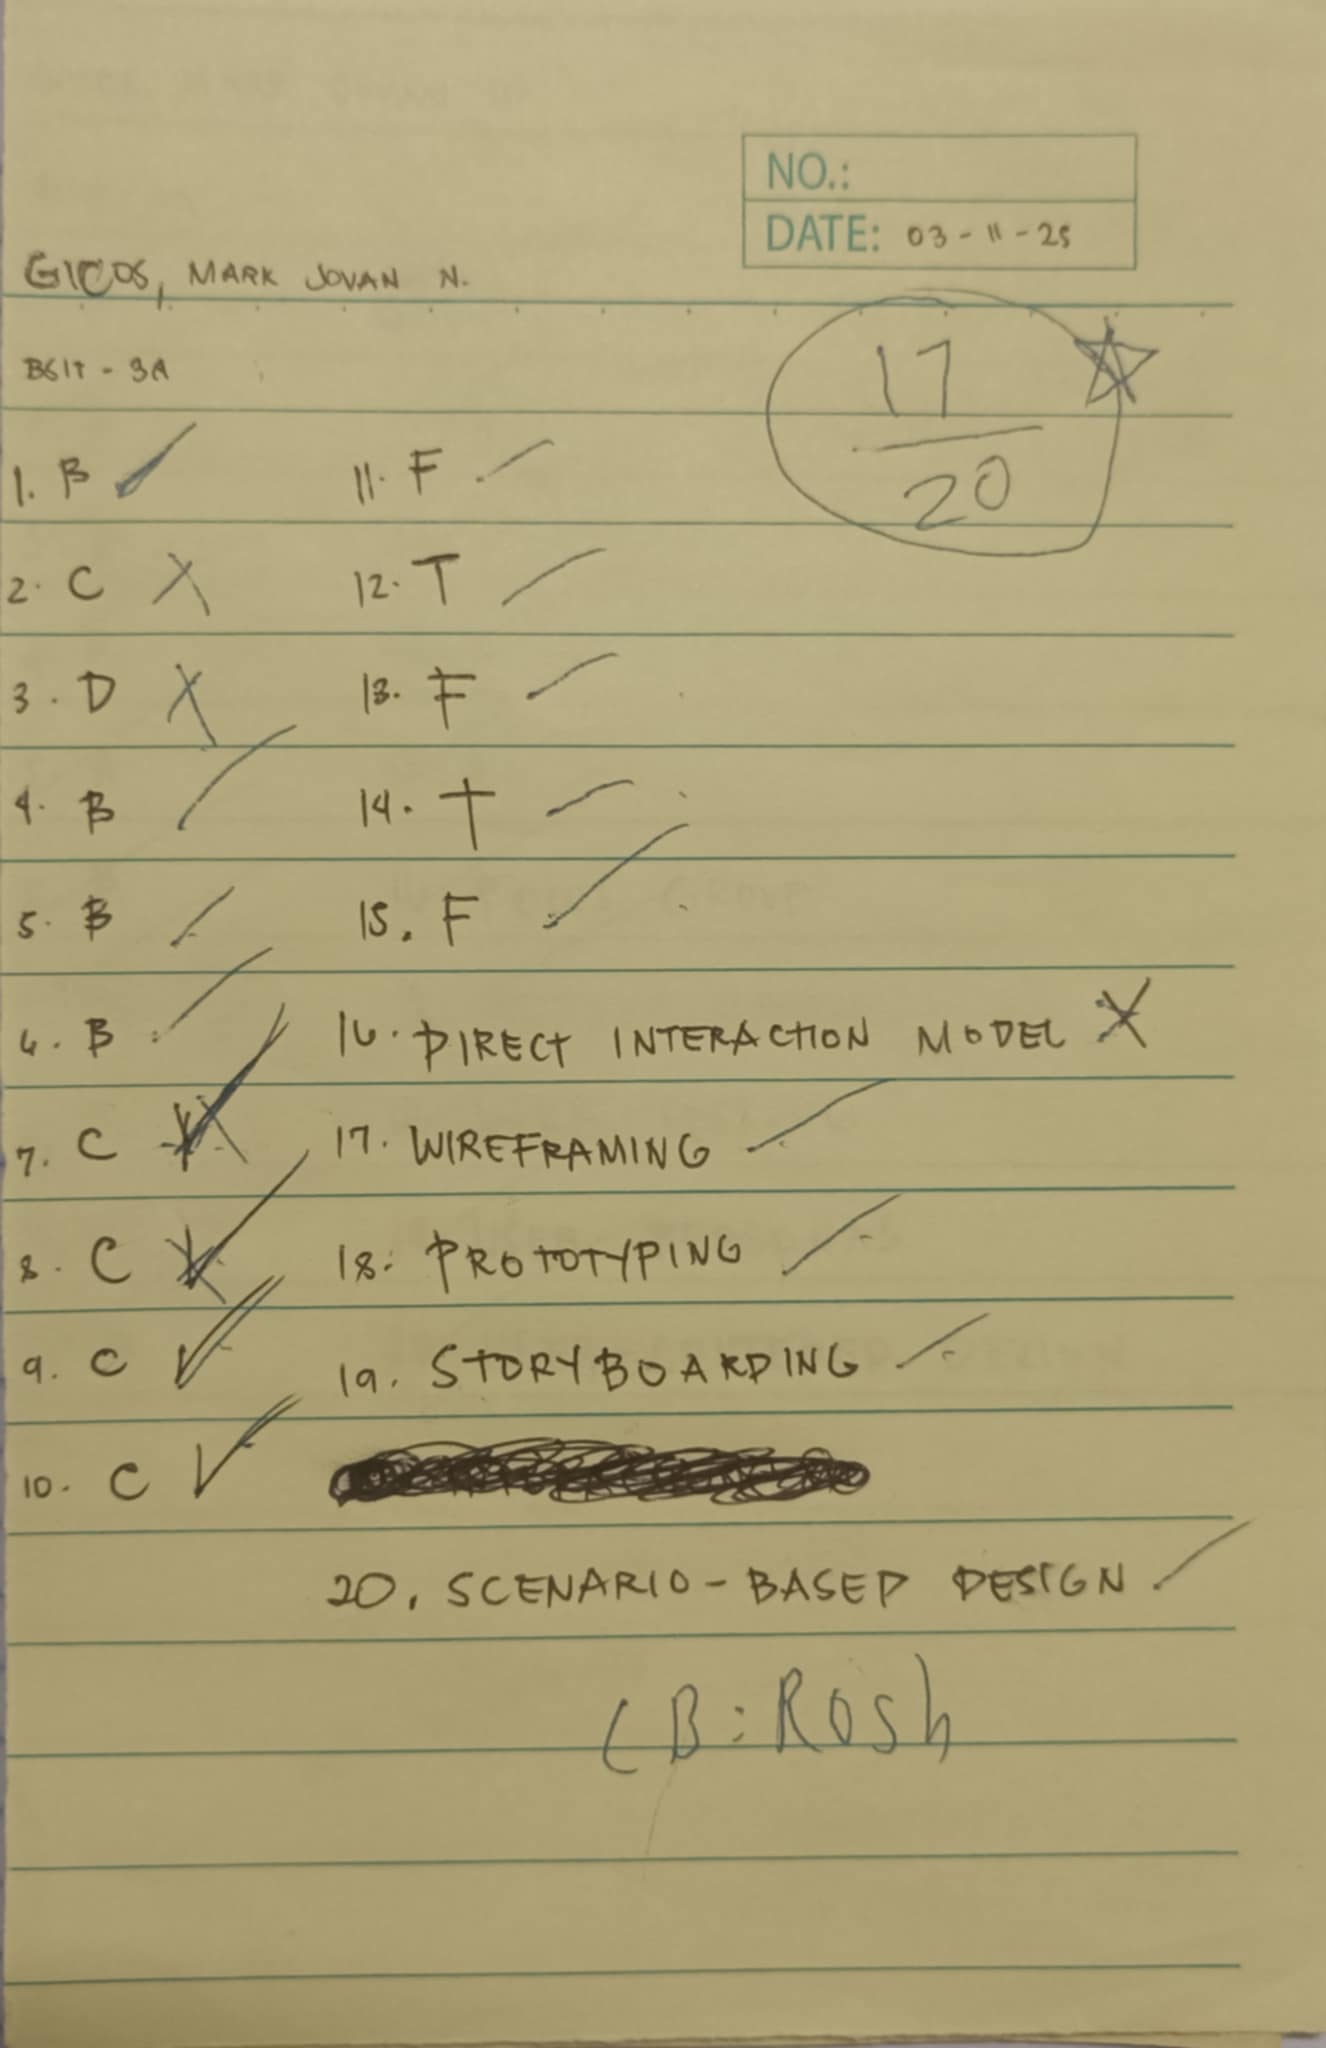 NO.:
DATE: 03-11-25
GICOS, MARK JOVAN N.
BSIT - 3A
17
20
1. B
2. C
3. D
4. B
5. B
6. B
7. C
8. C
9. C
10. C
11. F
12. T
13. F
14. T
15. F
16. DIRECT INTERACTION MODEL
17. WIREFRAMING
18. PROTOTYPING
19. STORYBOARDING
20. SCENARIO-BASED DESIGN
CB: Rosh